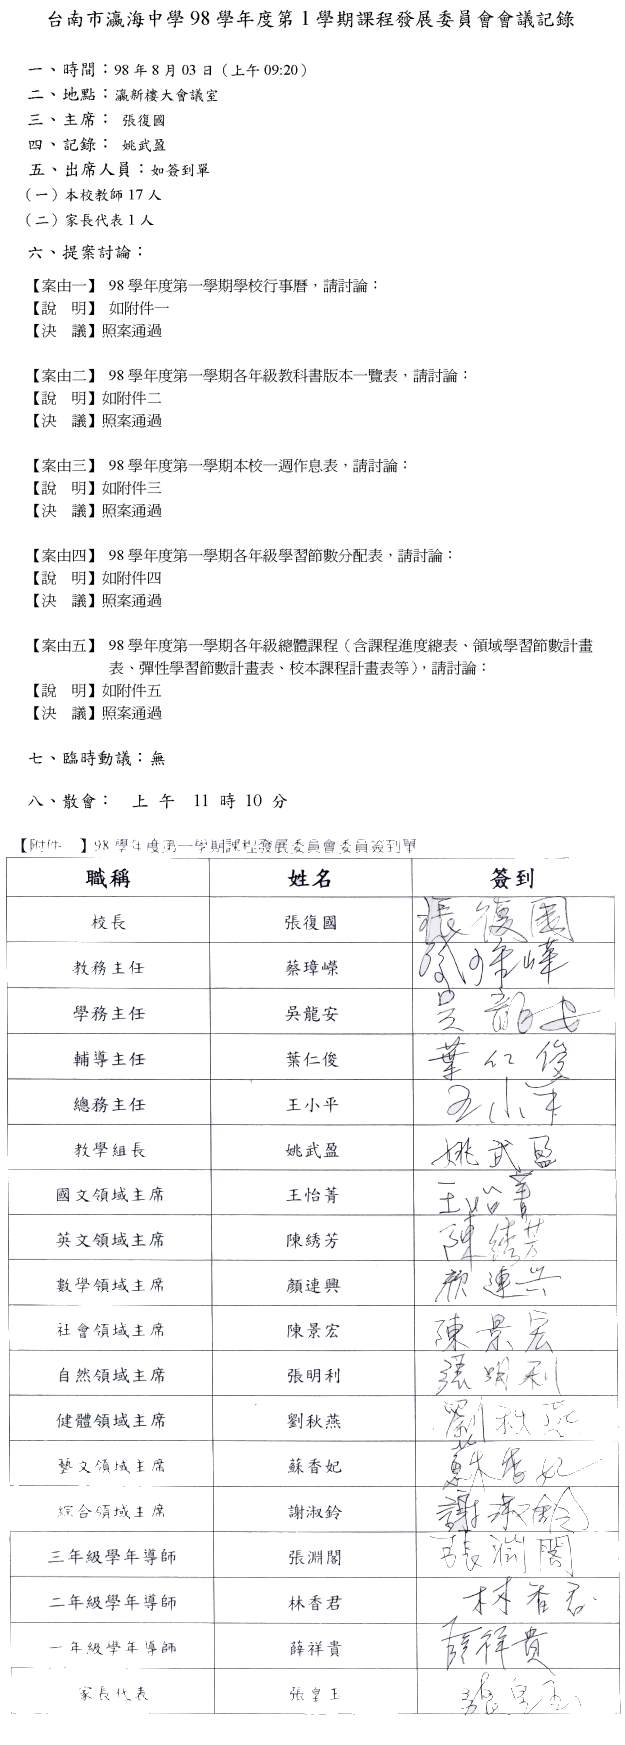 台南市瀛海中學 98 學年度第 1 學期課程發展委員會會議記錄
一、時間：98 年 8 月 03 日（上午 09:20）
二、地點：瀛新樓大會議室
三、主席： 張復國
四、記錄： 姚武盈
五、出席人員：如簽到單
（一）本校教師 17 人
（二）家長代表 1 人
六、提案討論：
【案由一】 98 學年度第一學期學校行事曆，請討論：
【說　明】 如附件一
【決　議】照案通過
【案由二】 98 學年度第一學期各年級教科書版本一覽表，請討論：
【說　明】如附件二
【決　議】照案通過
【案由三】 98 學年度第一學期本校一週作息表，請討論：
【說　明】如附件三
【決　議】照案通過
【案由四】 98 學年度第一學期各年級學習節數分配表，請討論：
【說　明】如附件四
【決　議】照案通過
【案由五】 98 學年度第一學期各年級總體課程（含課程進度總表、領域學習節數計畫
表、彈性學習節數計畫表、校本課程計畫表等），請討論：
【說　明】如附件五
【決　議】照案通過
七、臨時動議：無
八、散會：　上 午　11 時 10 分
【附件　】98 學年度第一學期課程發展委員會委員簽到單
職稱 姓名 簽到
校長 張復國 張復國
教務主任 蔡璋嶸 蔡璋嶸
學務主任 吳龍安 吳龍安
輔導主任 葉仁俊 葉仁俊
總務主任 王小平 王小平
教學組長 姚武盈 姚武盈
國文領域主席 王怡菁 王怡菁
英文領域主席 陳綉芳 陳綉芳
數學領域主席 顏連興 顏連興
社會領域主席 陳景宏 陳景宏
自然領域主席 張明利 張明利
健體領域主席 劉秋燕 劉秋燕
藝文領域主席 蘇香妃 蘇香妃
綜合領域主席 謝淑鈴 謝淑鈴
三年級學年導師 張淵閣 張淵閣
二年級學年導師 林香君 林香君
一年級學年導師 薛祥貴 薛祥貴
家長代表 張皇玉 張皇玉